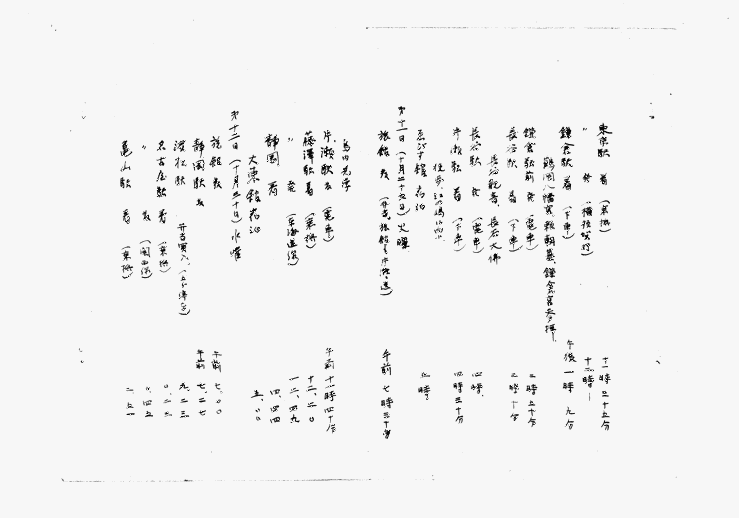 東京駅 着 (乗換) 十一時三十五分
〃 発 (横須賀行) 十二時
鎌倉駅 着 (下車) 午後 一時 九分
鶴岡八幡宮、頼朝墓、鎌倉宮参拝
鎌倉駅前 発 (電車) 二時五十分
長谷駅 着 (下車) 三時十分
長谷観音、長谷大佛
長谷駅 発 (電車) 四時
片瀬駅 着 (下車) 四時三十分
徒歩、江の島に向ふ
ゑびす館 宿泊
第十一日 (十月二十九日) 火曜
旅館 発 午前 七時三十分
島内見学
片瀬駅 発 (電車) 午前 十一時四十分
藤澤駅 着 (乗換) 十二、二〇
〃 発 (東海道線) 一二、四九
静岡 着 四、四四
大東館 宿泊 五、〇〇
第十二日 (十月三十日) 水曜
旅館 発 午前 七、〇〇
静岡駅 発 午前 七、二七
浜松駅 弁当買入 九、二三
名古屋駅 着 (乗換) 〇、二三
〃 発 (関西線) 〇、四五
亀山駅 着 (乗換) 二、五一